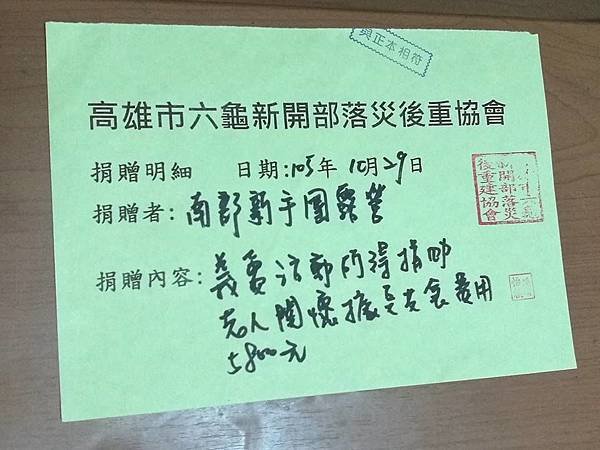 與正本相符
高雄市六龜新開部落災後重協會
捐贈明細 日期:105年10月29日
捐贈者: 南部新手團露營
捐贈內容: 義賣活動所得捐助
老人關懷據點共食費用
5800元
新開部落災
後重建協會